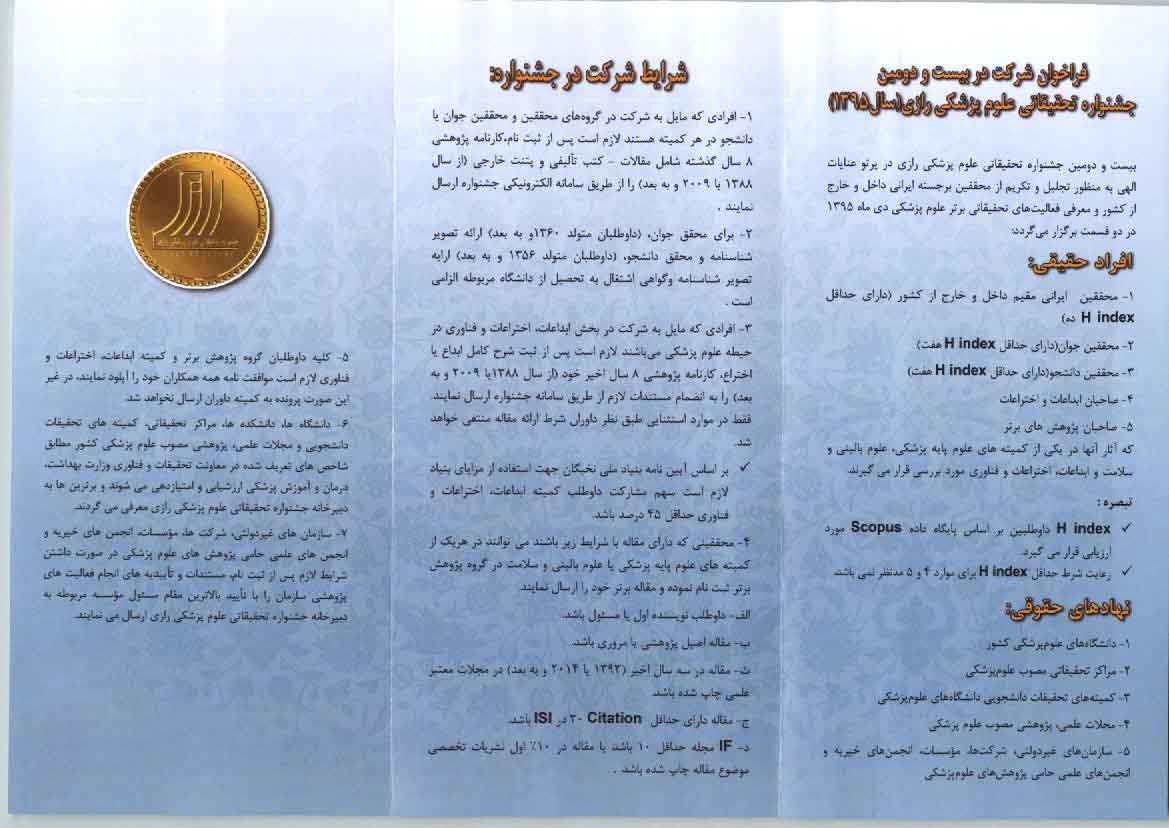 فراخوان شرکت در بیست و دومین
جشنواره تحقیقاتی علوم پزشکی رازی(سال۱۳۹۵)
بیست و دومین جشنواره تحقیقاتی علوم پزشکی رازی در پرتو عنایات
الهی به منظور تجلیل و تکریم از محققین برجسته ایرانی داخل و خارج
از کشور و معرفی فعالیت‌های تحقیقاتی برتر علوم پزشکی دی ماه ۱۳۹۵
در دو قسمت برگزار می‌گردد:
افراد حقیقی:
۱- محققین ایرانی مقیم داخل و خارج از کشور (دارای حداقل
H index ده)
۲- محققین جوان(دارای حداقل H index هفت)
۳- محققین دانشجو(دارای حداقل H index هفت)
۴- صاحبان ابداعات و اختراعات
۵- صاحبان پژوهش های برتر
که آثار آنها در یکی از کمیته های علوم پایه پزشکی، علوم بالینی و
سلامت و ابداعات، اختراعات و فناوری مورد بررسی قرار می گیرند.
تبصره :
✓ H index داوطلبین بر اساس پایگاه داده Scopus مورد
ارزیابی قرار می گیرد.
✓ رعایت شرط حداقل H index برای موارد ۴ و ۵ مدنظر نمی باشد.
نهادهای حقوقی:
۱- دانشگاه‌های علوم‌پزشکی کشور
۲- مراکز تحقیقاتی مصوب علوم‌پزشکی
۳- کمیته‌های تحقیقات دانشجویی دانشگاه‌های علوم‌پزشکی
۴- مجلات علمی، پژوهشی مصوب علوم پزشکی
۵- سازمان‌های غیردولتی، شرکت‌ها، مؤسسات، انجمن‌های خیریه و
انجمن‌های علمی حامی پژوهش‌های علوم‌پزشکی
شرایط شرکت در جشنواره:
۱- افرادی که مایل به شرکت در گروه‌های محققین و محققین جوان یا
دانشجو در هر کمیته هستند لازم است پس از ثبت نام،کارنامه پژوهشی
۸ سال گذشته شامل مقالات - کتب تألیفی و پتنت خارجی (از سال
۱۳۸۸ یا ۲۰۰۹ و به بعد) را از طریق سامانه الکترونیکی جشنواره ارسال
نمایند .
۲- برای محقق جوان، (داوطلبان متولد ۱۳۶۰و به بعد) ارائه تصویر
شناسنامه و محقق دانشجو، (داوطلبان متولد ۱۳۵۶ و به بعد) ارایه
تصویر شناسنامه وگواهی اشتغال به تحصیل از دانشگاه مربوطه الزامی
است .
۳- افرادی که مایل به شرکت در بخش ابداعات، اختراعات و فناوری در
حیطه علوم پزشکی می‌باشند لازم است پس از ثبت شرح کامل ابداع یا
اختراع، کارنامه پژوهشی ۸ سال اخیر خود (از سال ۱۳۸۸یا ۲۰۰۹ و به
بعد) را به انضمام مستندات لازم از طریق سامانه جشنواره ارسال نمایند.
فقط در موارد استثنایی طبق نظر داوران شرط ارائه مقاله منتفی خواهد
شد.
✓ بر اساس آیین نامه بنیاد ملی نخبگان جهت استفاده از مزایای بنیاد
لازم است سهم مشارکت داوطلب کمیته ابداعات، اختراعات و
فناوری حداقل ۴۵ درصد باشد.
۴- محققینی که دارای مقاله با شرایط زیر باشند می توانند در هریک از
کمیته های علوم پایه پزشکی یا علوم بالینی و سلامت در گروه پژوهش
برتر ثبت نام نموده و مقاله برتر خود را ارسال نمایند:
الف- داوطلب نویسنده اول یا مسئول باشد.
ب- مقاله اصیل پژوهشی یا مروری باشد.
ث- مقاله در سه سال اخیر (۱۳۹۲ یا ۲۰۱۴ و به بعد) در مجلات معتبر
علمی چاپ شده باشد.
ج- مقاله دارای حداقل Citation ۳۰ در ISI باشد.
د- IF مجله حداقل ۱۰ باشد یا مقاله در ۱۰٪ اول نشریات تخصصی
موضوع مقاله چاپ شده باشد .
۵- کلیه داوطلبان گروه پژوهش برتر و کمیته ابداعات، اختراعات و
فناوری لازم است موافقت نامه همه همکاران خود را آپلود نمایند، در غیر
این صورت پرونده به کمیته داوران ارسال نخواهد شد.
۶- دانشگاه ها، دانشکده ها، مراکز تحقیقاتی، کمیته های تحقیقات
دانشجویی و مجلات علمی، پژوهشی مصوب علوم پزشکی کشور مطابق
شاخص های تعریف شده در معاونت تحقیقات و فناوری وزارت بهداشت،
درمان و آموزش پزشکی ارزشیابی و امتیازدهی می شوند و برترین ها به
دبیرخانه جشنواره تحقیقاتی علوم پزشکی رازی معرفی می گردند.
۷- سازمان های غیردولتی، شرکت ها، مؤسسات، انجمن های خیریه و
انجمن های علمی حامی پژوهش های علوم پزشکی در صورت داشتن
شرایط لازم پس از ثبت نام، مستندات و تأییدیه های انجام فعالیت های
پژوهشی سازمان را با تأیید بالاترین مقام مسئول مؤسسه مربوطه به
دبیرخانه جشنواره تحقیقاتی علوم پزشکی رازی ارسال می نمایند.